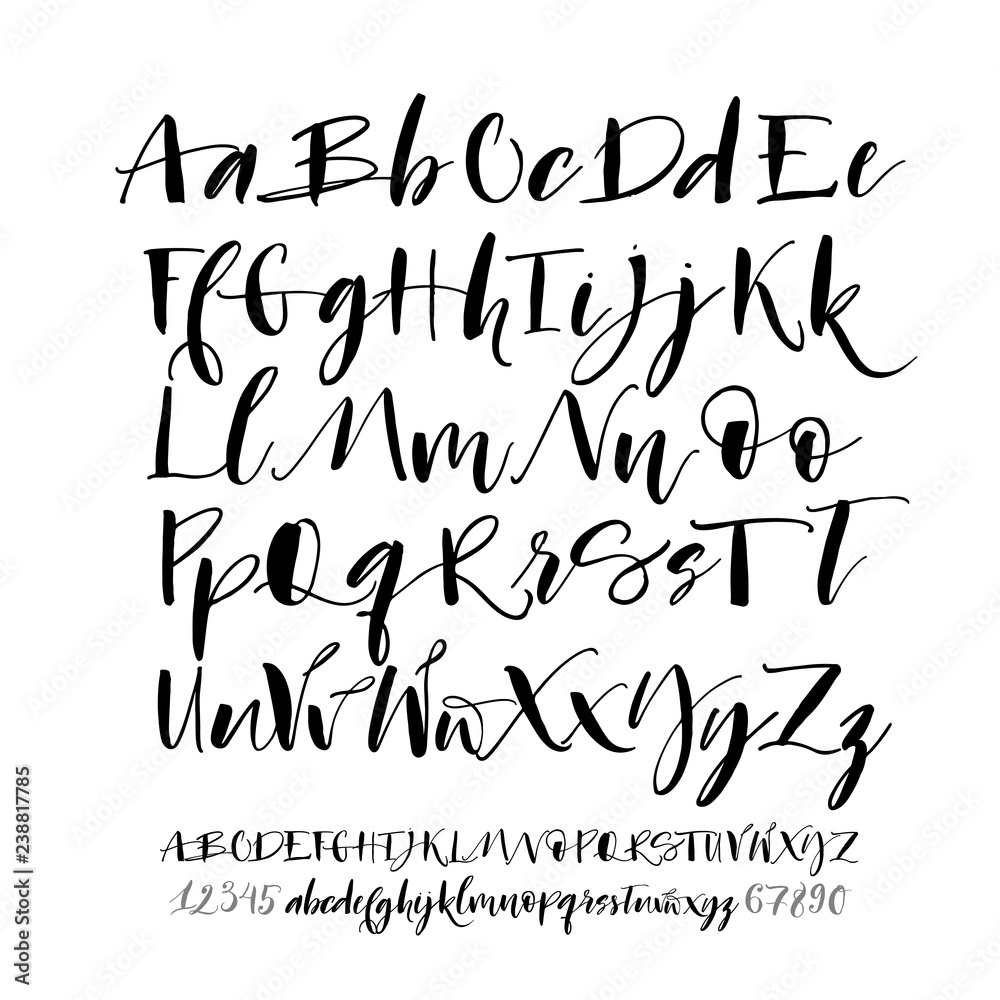 Aa Bb Cc Dd Ee
Ff Gg Hh Ii Jj Kk
Ll Mm Nn Oo
Pp Qq Rr Ss Tt
Uu Vv Ww Xx Yy Zz
ABCDEFGHIJKLMNOPQRSTUVWXYZ
12345 abcdefghijklmnopqrsstuvwxyz 67890
Adobe Stock | #238817785